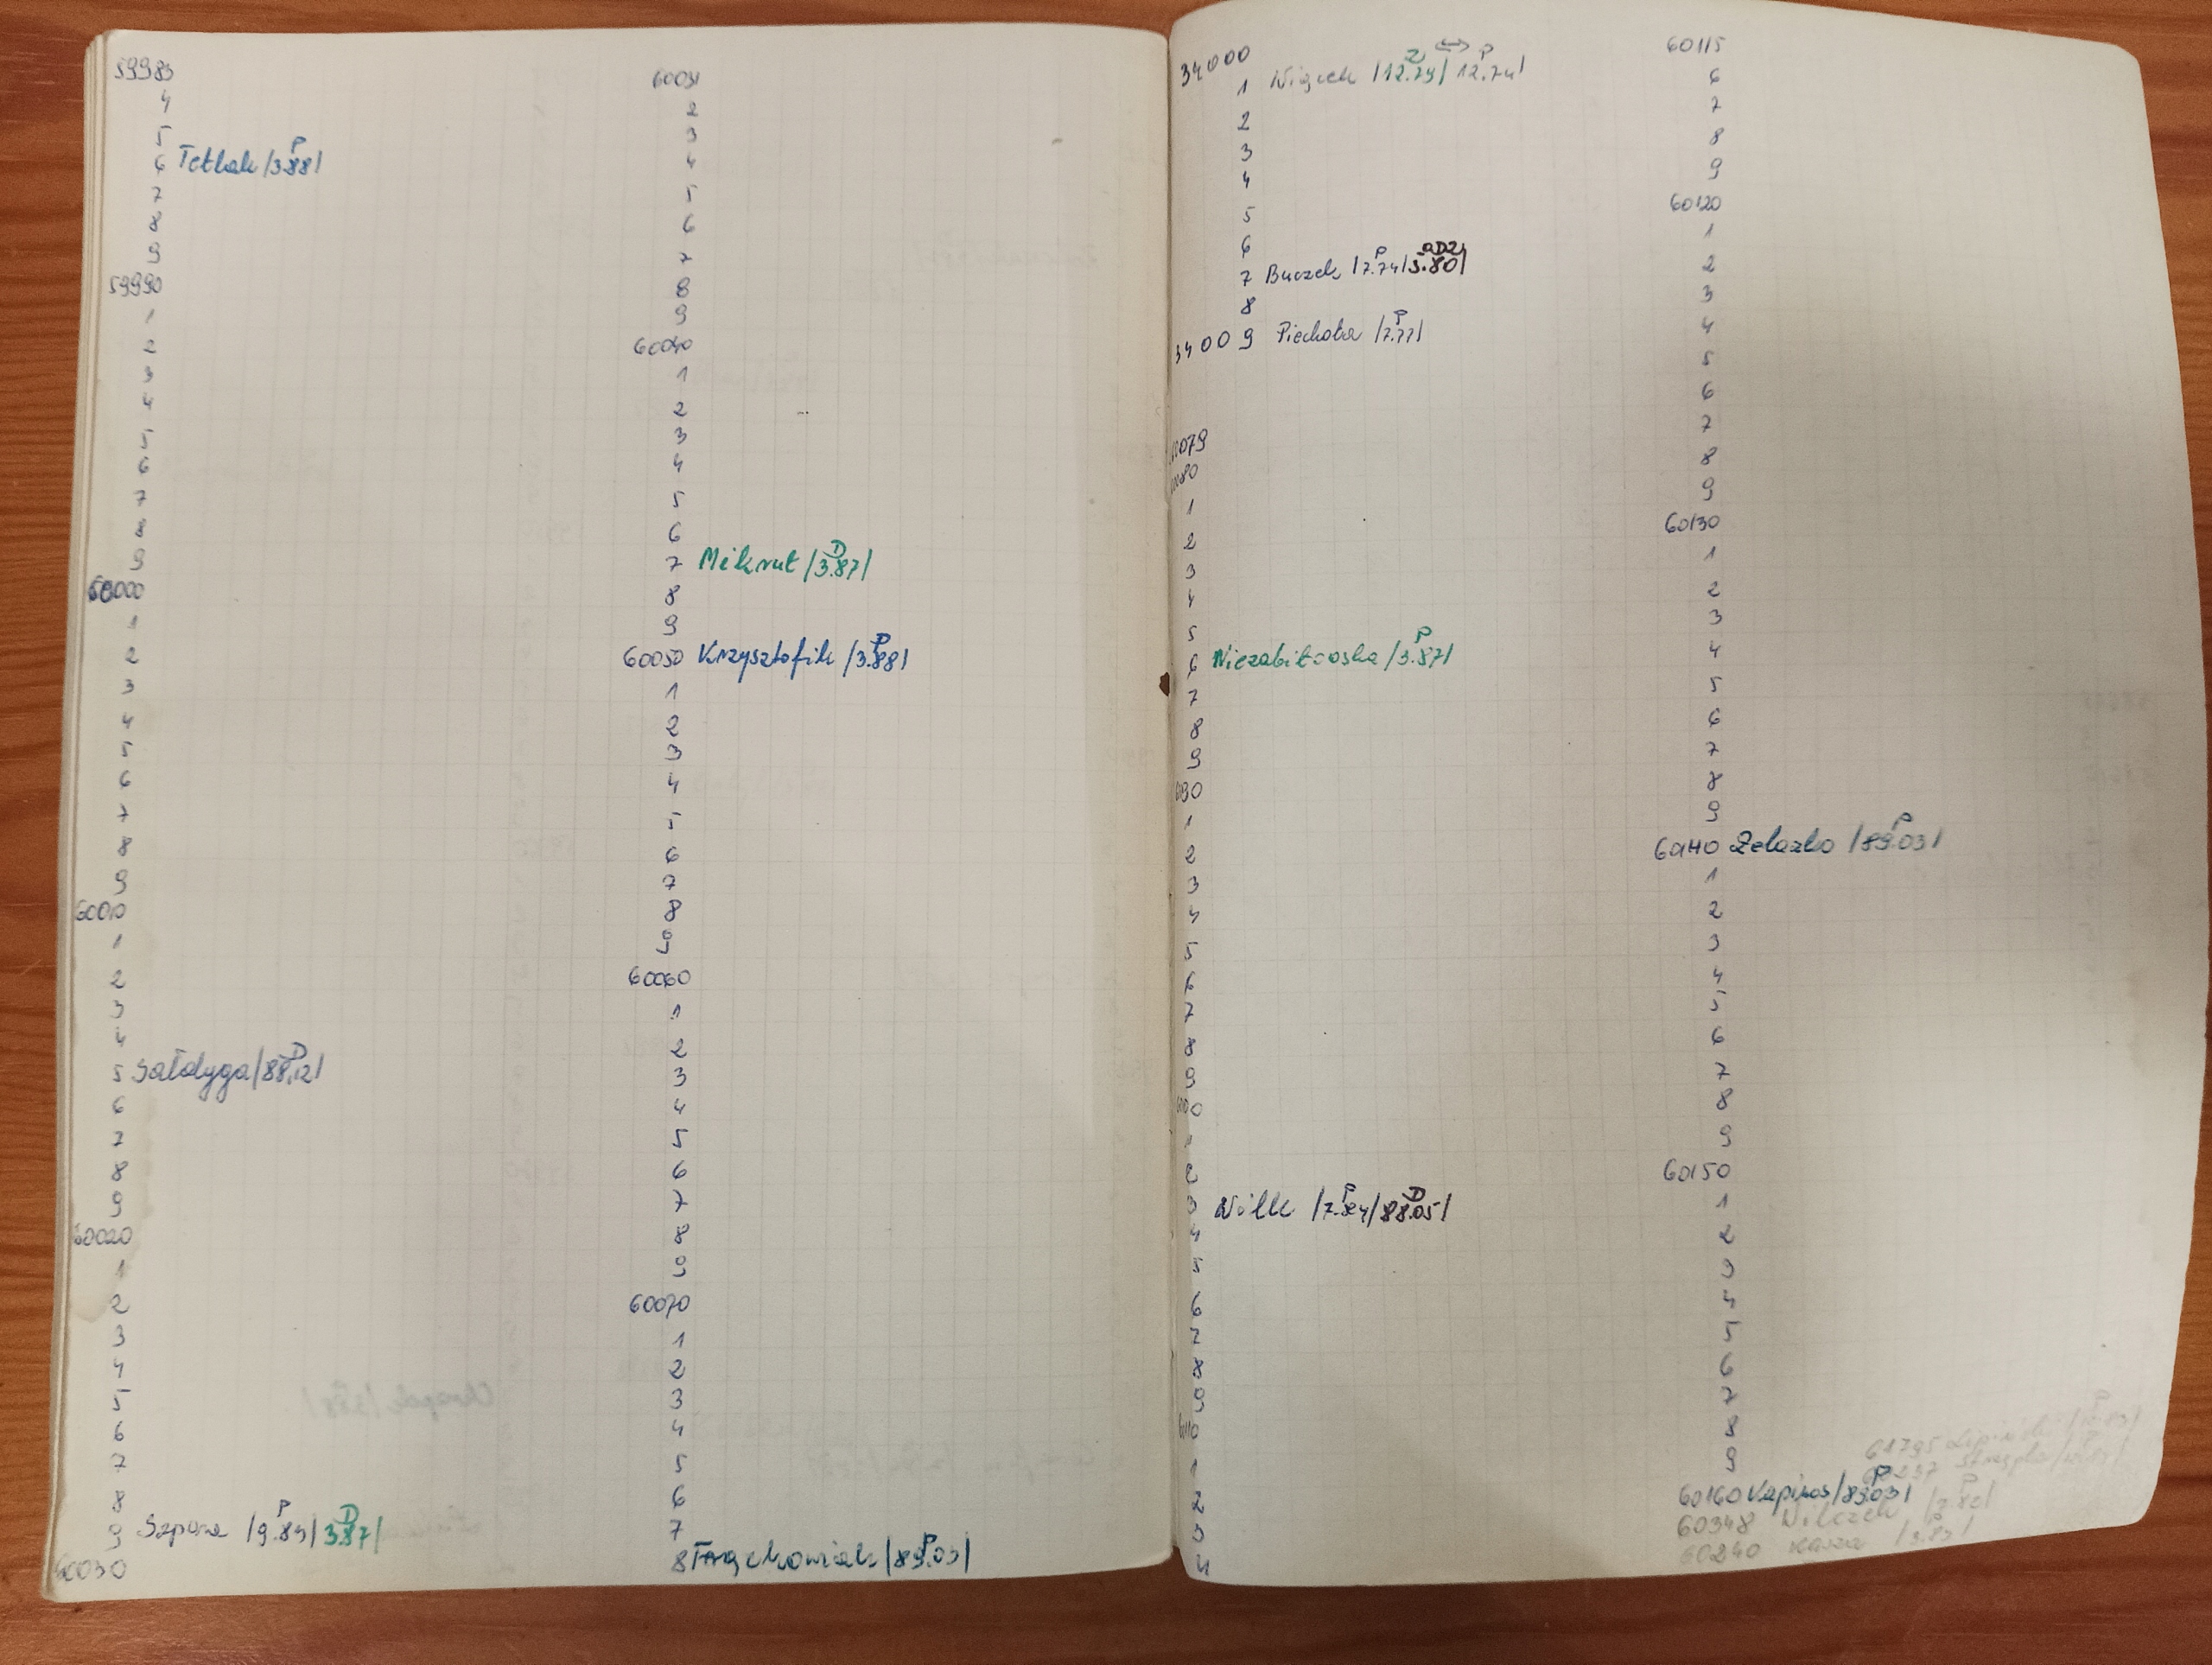 59983
4
5
6 Tetlak /3.88/ P
7
8
9
59990
1
2
3
4
5
6
7
8
9
60000
1
2
3
4
5
6
7
8
9
60010
1
2
3
4
5 Sałdyga /88.12/ D
6
7
8
9
60020
1
2
3
4
5
6
7
8
9 Szpara /9.84/ P 3.87/ D
60030
60031
2
3
4
5
6
7
8
9
60040
1
2
3
4
5
6
7 Mikrut /3.87/ D
8
9
60050 Krzysztofik /3.88/ P
1
2
3
4
5
6
7
8
9
60060
1
2
3
4
5
6
7
8
9
60070
1
2
3
4
5
6
7
8 /89.03/ P
34000
1 /12.79/ Z ↔ 12.74/ P
2
3
4
5
6
7 Buczek /7.74/ P 3.80/
8
34009 Piechota /7.77/ P
60079
60080
1
2
3
4
5
6 Niezabitowska /3.87/ P
7
8
9
6090
1
2
3
4
5
6
7
8
9
6100
1
2
3 Wilk /7.84/ P 88.05/ D
4
5
6
7
8
9
6110
1
2
3
4
60115
6
7
8
9
60120
1
2
3
4
5
6
7
8
9
60130
1
2
3
4
5
6
7
8
9
60140 Żelazko /89.03/ P
1
2
3
4
5
6
7
8
9
60150
1
2
3
4
5
6
7
8
9
60160 Kapinos /89.03/ P
60348 Wilczek /7.80/ P
60240 Kasza P